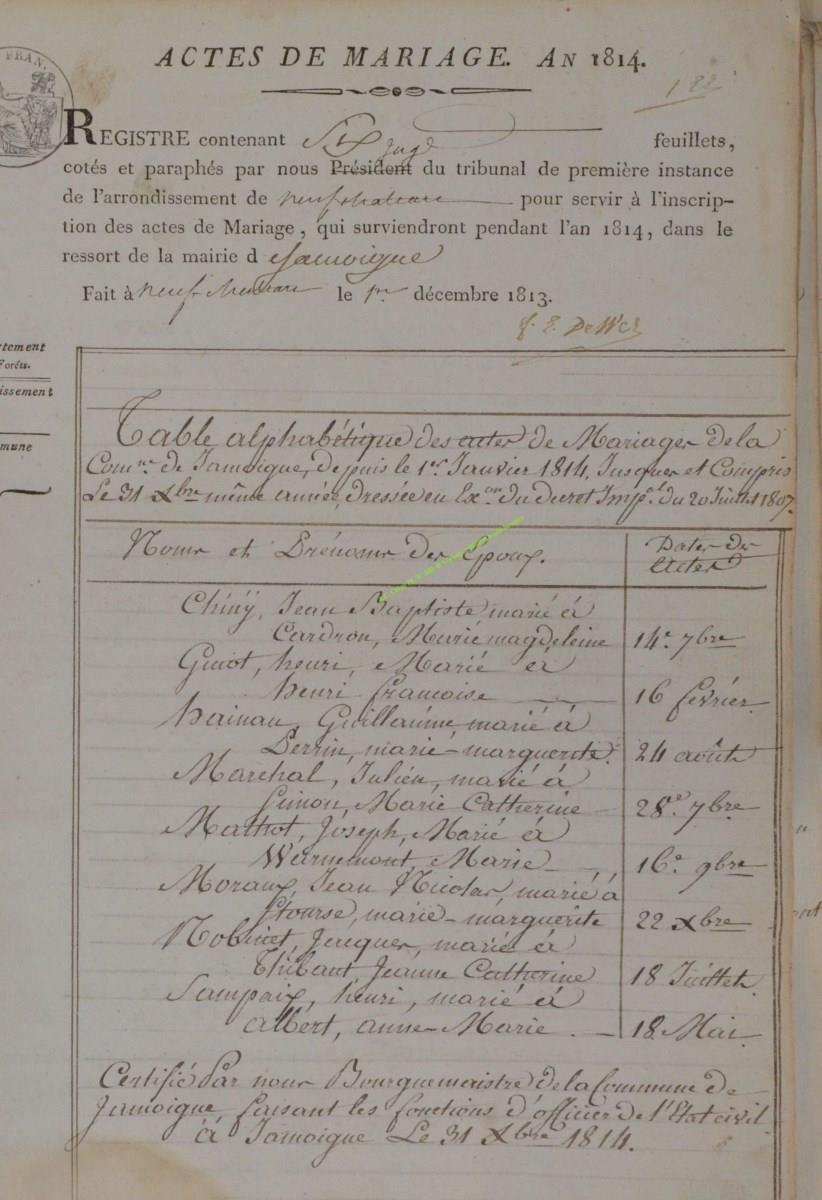 FRAN.
ACTES DE MARIAGE. AN 1814.
122
REGISTRE contenant Six feuillets,
juge
cotés et paraphés par nous Président du tribunal de première instance
de l'arrondissement de neufchateau pour servir à l'inscrip-
tion des actes de Mariage, qui surviendront pendant l'an 1814, dans le
ressort de la mairie d Jamoigne
Fait à neufchateau le 1er décembre 1813.
rtement
Forêts.
issement
mune
Table alphabétique des actes de Mariages de la
Comne de Jamoigne, depuis le 1er Janvier 1814, Jusques et Compris
Le 31 Xbre même année, dressée en Exon du decret Impal du 20 Juillet 1807.
Noms et Prénoms des Epoux. Dates des
Actes
Chinÿ, Jean Baptiste marié à
Cardron, Marie magdeleine 14e 7bre
Guiot, henri, Marié à
henri francoise 16 février
hainau, Guillaume, marié à
Perrin, marie-marguerite 24 août
Marchal, Julien, marié à
Simon, Marie Catherine 28e 7bre
Mathot, Joseph, Marié à
Warnemont, Marie 16e 9bre
Moraux, Jean Nicolas, marié à
Stourse, marie-marguerite 22 Xbre
Robinet, Jacques, marié à
Thibaut Jeanne Catherine 18 Juillet
Sampaix, henri, marié à
albert, anne-Marie 18 Mai
Certifié Par nous Bourguemaistre de la Commune de
Jamoigne faisant les fonctions d'officier de l'Etat civil
à Jamoigne Le 31 Xbre 1814.